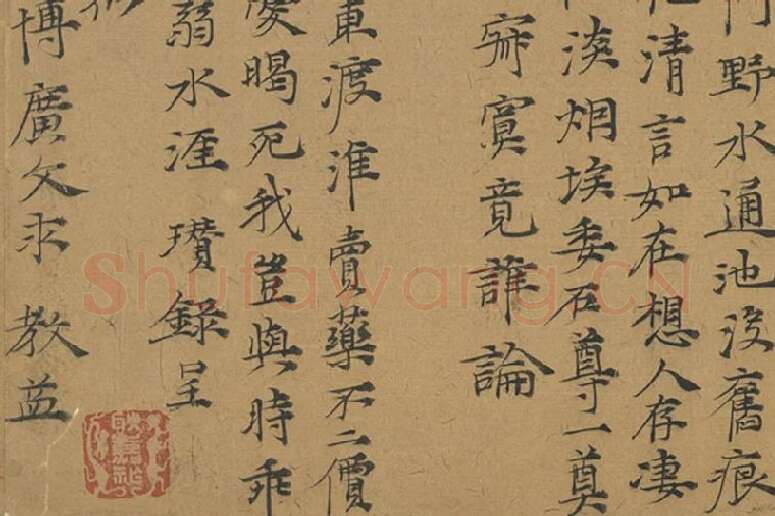 野水通池没舊痕
清言如在想人存凄
淡烟埃委石尊一奠
寂寞竟誰論
東渡淮賣藥不二價
暍死我豈與時乖
翁水涯瓚錄呈
博廣文求教益
Shufawang.CN